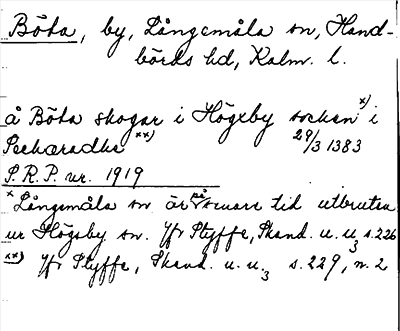 Böta, by, Långemåla sn, Hand-
börds hd, Kalm. l.
å Böta skogar i Högxby sockan x) i
Peehæradhr xx) 29/3 1383
S.R.P. nr. 1919
x Långemåla sn är på senare tid utbruten
ur Högsby sn. Jfr Styffe, Skand. u. u3 s. 226
xx) Jfr Styffe, Skand. u. u.3 s. 229, n. 2